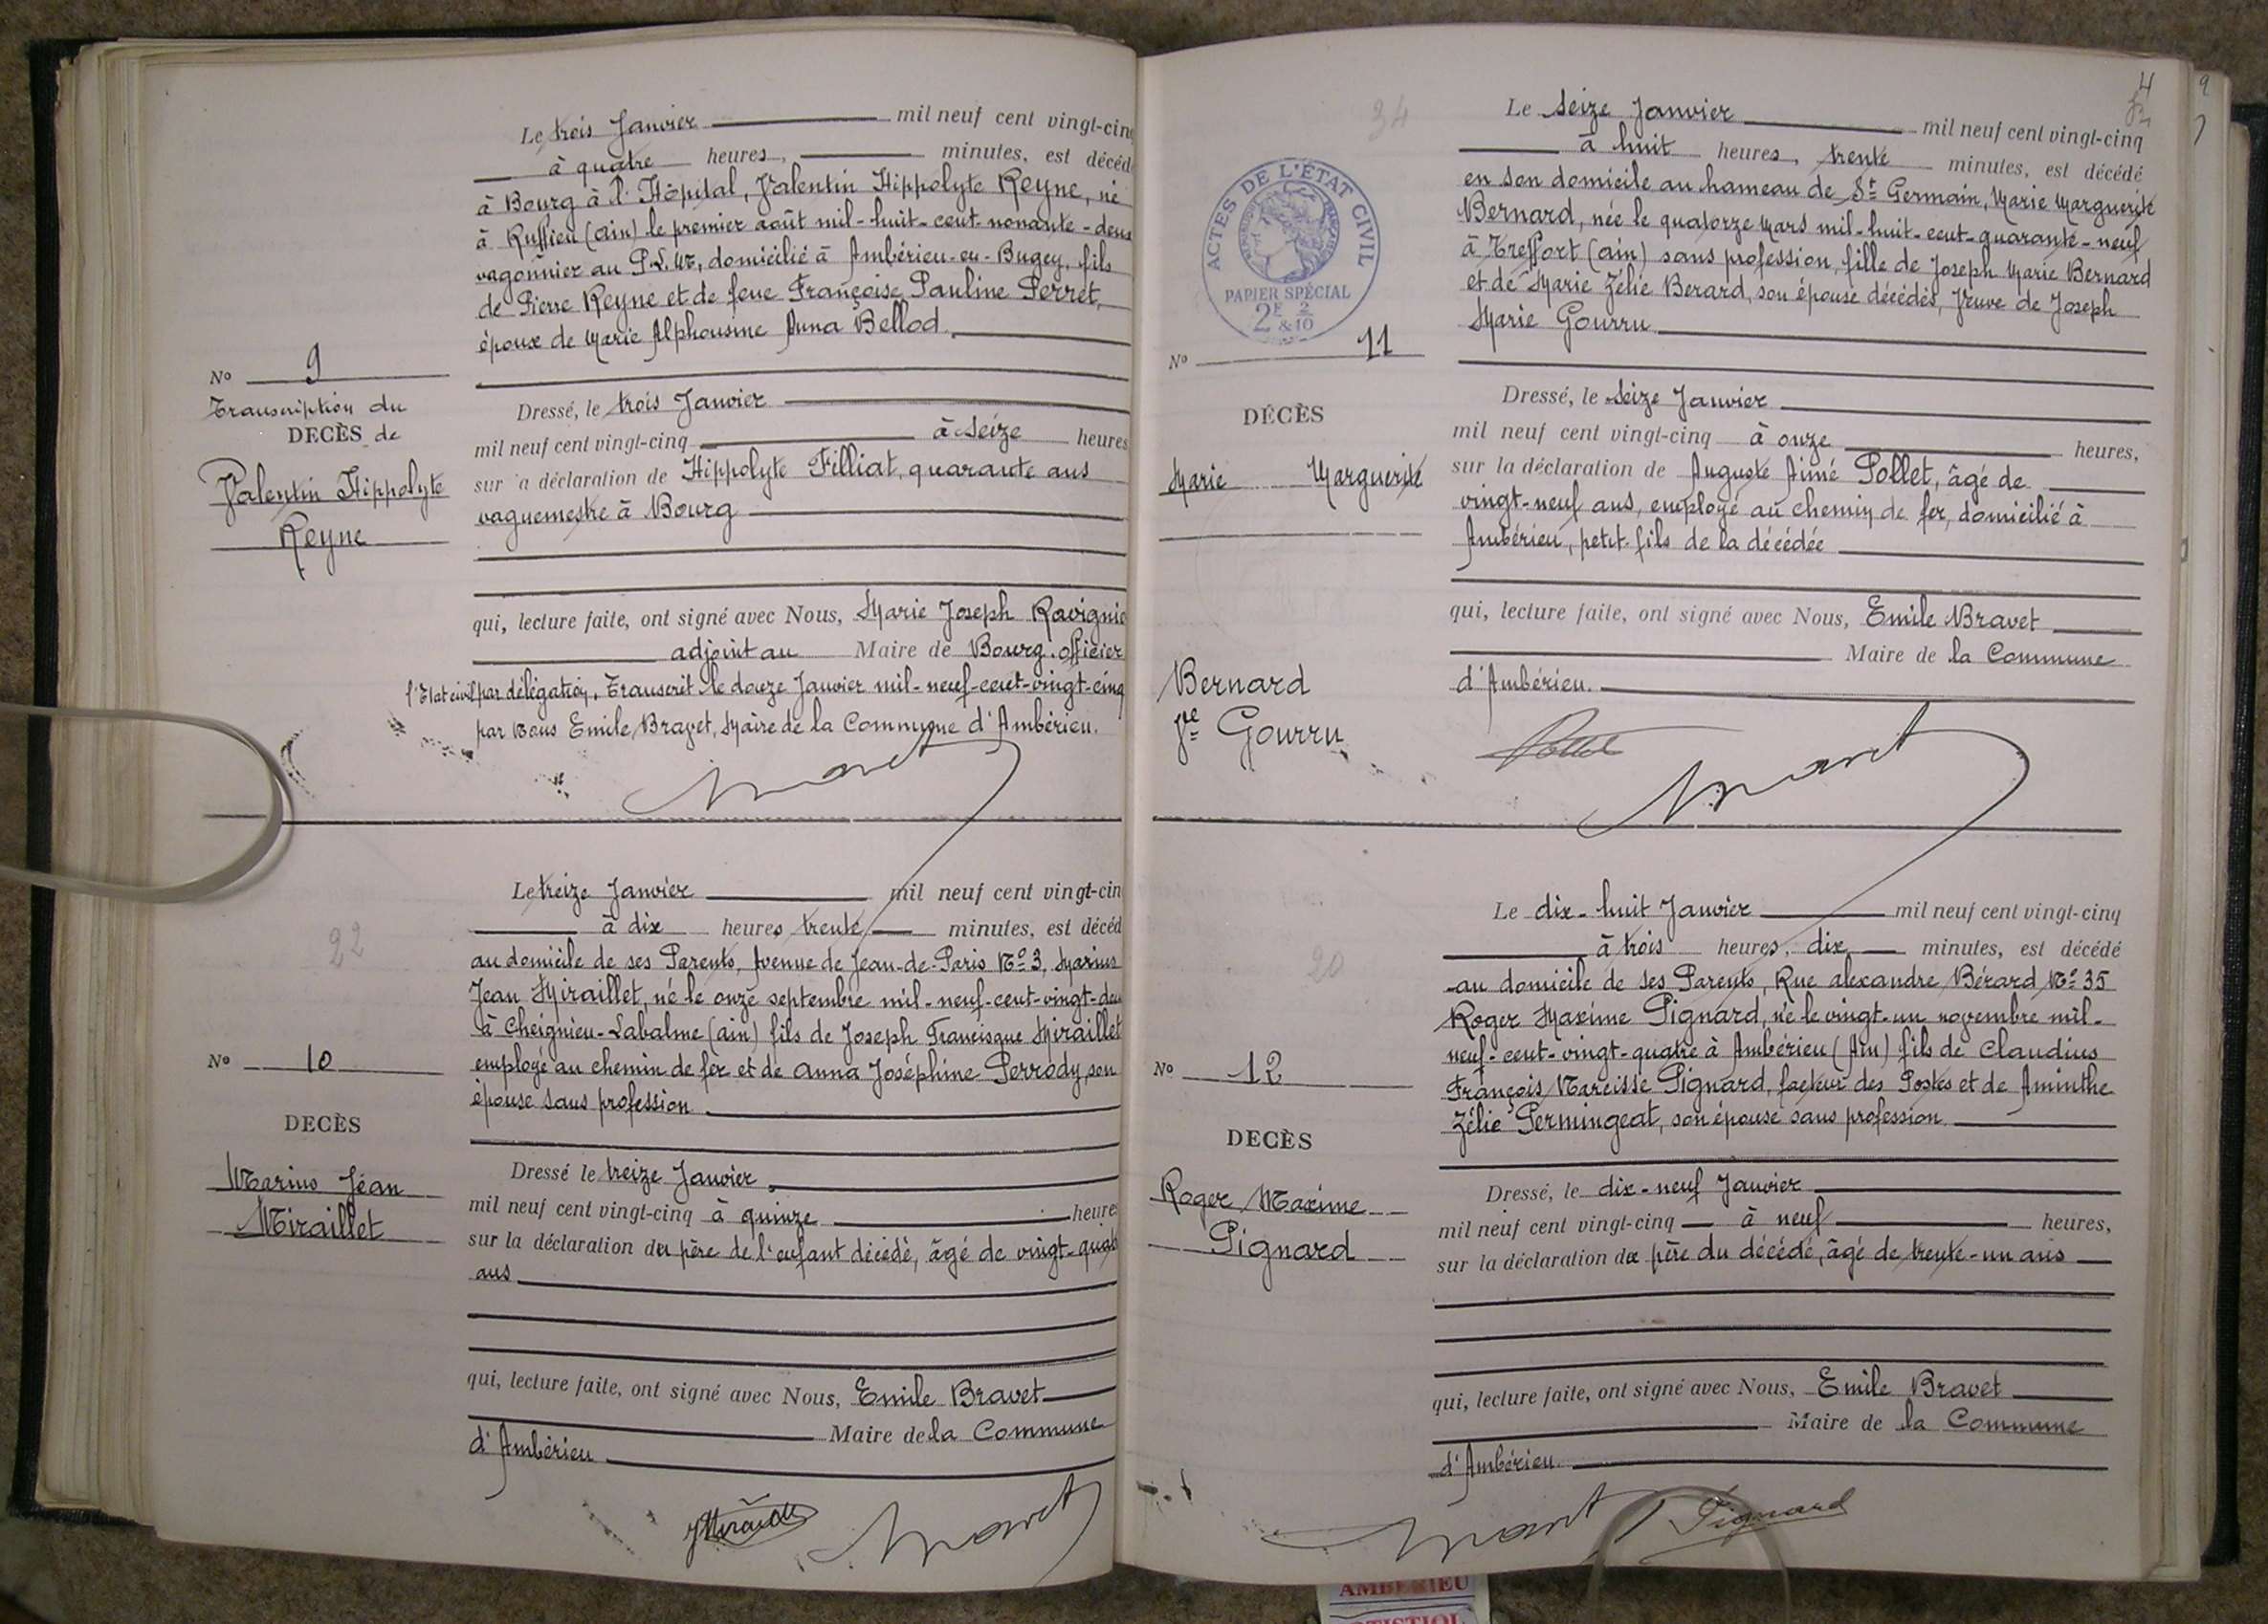 Le trois Janvier mil neuf cent vingt-cinq
à quatre heures, minutes, est décédé
à Bourg à l'Hôpital, Valentin Hippolyte Reyne, né
à Ruffieu (ain) le premier août mil-huit-cent-nonante-deux
wagonnier au P.L.M., domicilié à Ambérieu-en-Bugey, fils
de Pierre Reyne et de feue Françoise Pauline Perret,
époux de Marie Alphonsine Anna Bellod.
No 9
Transcription du
DECÈS de
Valentin Hippolyte
Reyne
Dressé, le trois Janvier
mil neuf cent vingt-cinq à seize heures
sur a déclaration de Hippolyte Filliat, quarante ans
vaguemestre à Bourg
qui, lecture faite, ont signé avec Nous, Marie Joseph
adjoint au Maire de Bourg. officier
l'Etat civil par délégation. Transcrit le douze Janvier mil-neuf-cent-vingt-cinq
par Nous Emile Bravet, Maire de la Commune d'Ambérieu.
Bravet
Le treize Janvier mil neuf cent vingt-cin
à dix heures trente minutes, est décéd
au domicile de ses Parents, Avenue de Jean-de-Paris No 3, Marius
Jean Miraillet, né le onze septembre mil-neuf-cent-vingt-deu
à Cheignieu-Labalme (ain) fils de Joseph Francisque Miraillet
employé au chemin de fer et de Anna Joséphine Perrody, son
épouse sans profession
No 10
DECÈS
Marius Jean
Miraillet
Dressé le treize Janvier
mil neuf cent vingt-cinq à quinze heures
sur la déclaration du père de l'enfant décédé, âgé de vingt-quat
ans
qui, lecture faite, ont signé avec Nous, Emile Bravet
Maire de la Commune
d'Ambérieu
Bravet
22
4
9
34
Le seize Janvier mil neuf cent vingt-cinq
à huit heures, trente minutes, est décédé
en son domicile au hameau de St Germain, Marie Marguerite
Bernard, née le quatorze Mars mil-huit-cent-quarante-neuf
à Treffort (ain) sans profession, fille de Joseph Marie Bernard
et de Marie Zélie Berard, son épouse décédés, Veuve de Joseph
Marie Gourru
ACTES DE L'ÉTAT CIVIL
PAPIER SPÉCIAL
2F 2
& 10
No 11
DÉCÈS
Marie Marguerite
Bernard
Vve Gourru
Dressé, le seize Janvier
mil neuf cent vingt-cinq à onze heures,
sur la déclaration de Auguste Aimé Pollet, âgé de
vingt-neuf ans, employé au chemin de fer, domicilié à
Ambérieu, petit-fils de la décédée
qui, lecture faite, ont signé avec Nous, Emile Bravet
Maire de la Commune
d'Ambérieu.
Pollet
Bravet
Le dix-huit Janvier mil neuf cent vingt-cinq
à trois heures, dix minutes, est décédé
au domicile de ses Parents, Rue alexandre Bérard No 35
Roger Maxime Pignard, né le vingt-un novembre mil-
neuf-cent-vingt-quatre à Ambérieu (Ain) fils de Claudius
François Narcisse Pignard, facteur des Postes et de Aminthe
Zélie Permingeat, son épouse sans profession
20
No 12
DECÈS
Roger Maxime
Pignard
Dressé, le dix-neuf Janvier
mil neuf cent vingt-cinq à neuf heures,
sur la déclaration du père du décédé, âgé de trente-un ans
qui, lecture faite, ont signé avec Nous, Emile Bravet
Maire de la Commune
d'Ambérieu.
Bravet Pignard
AMBERIEU